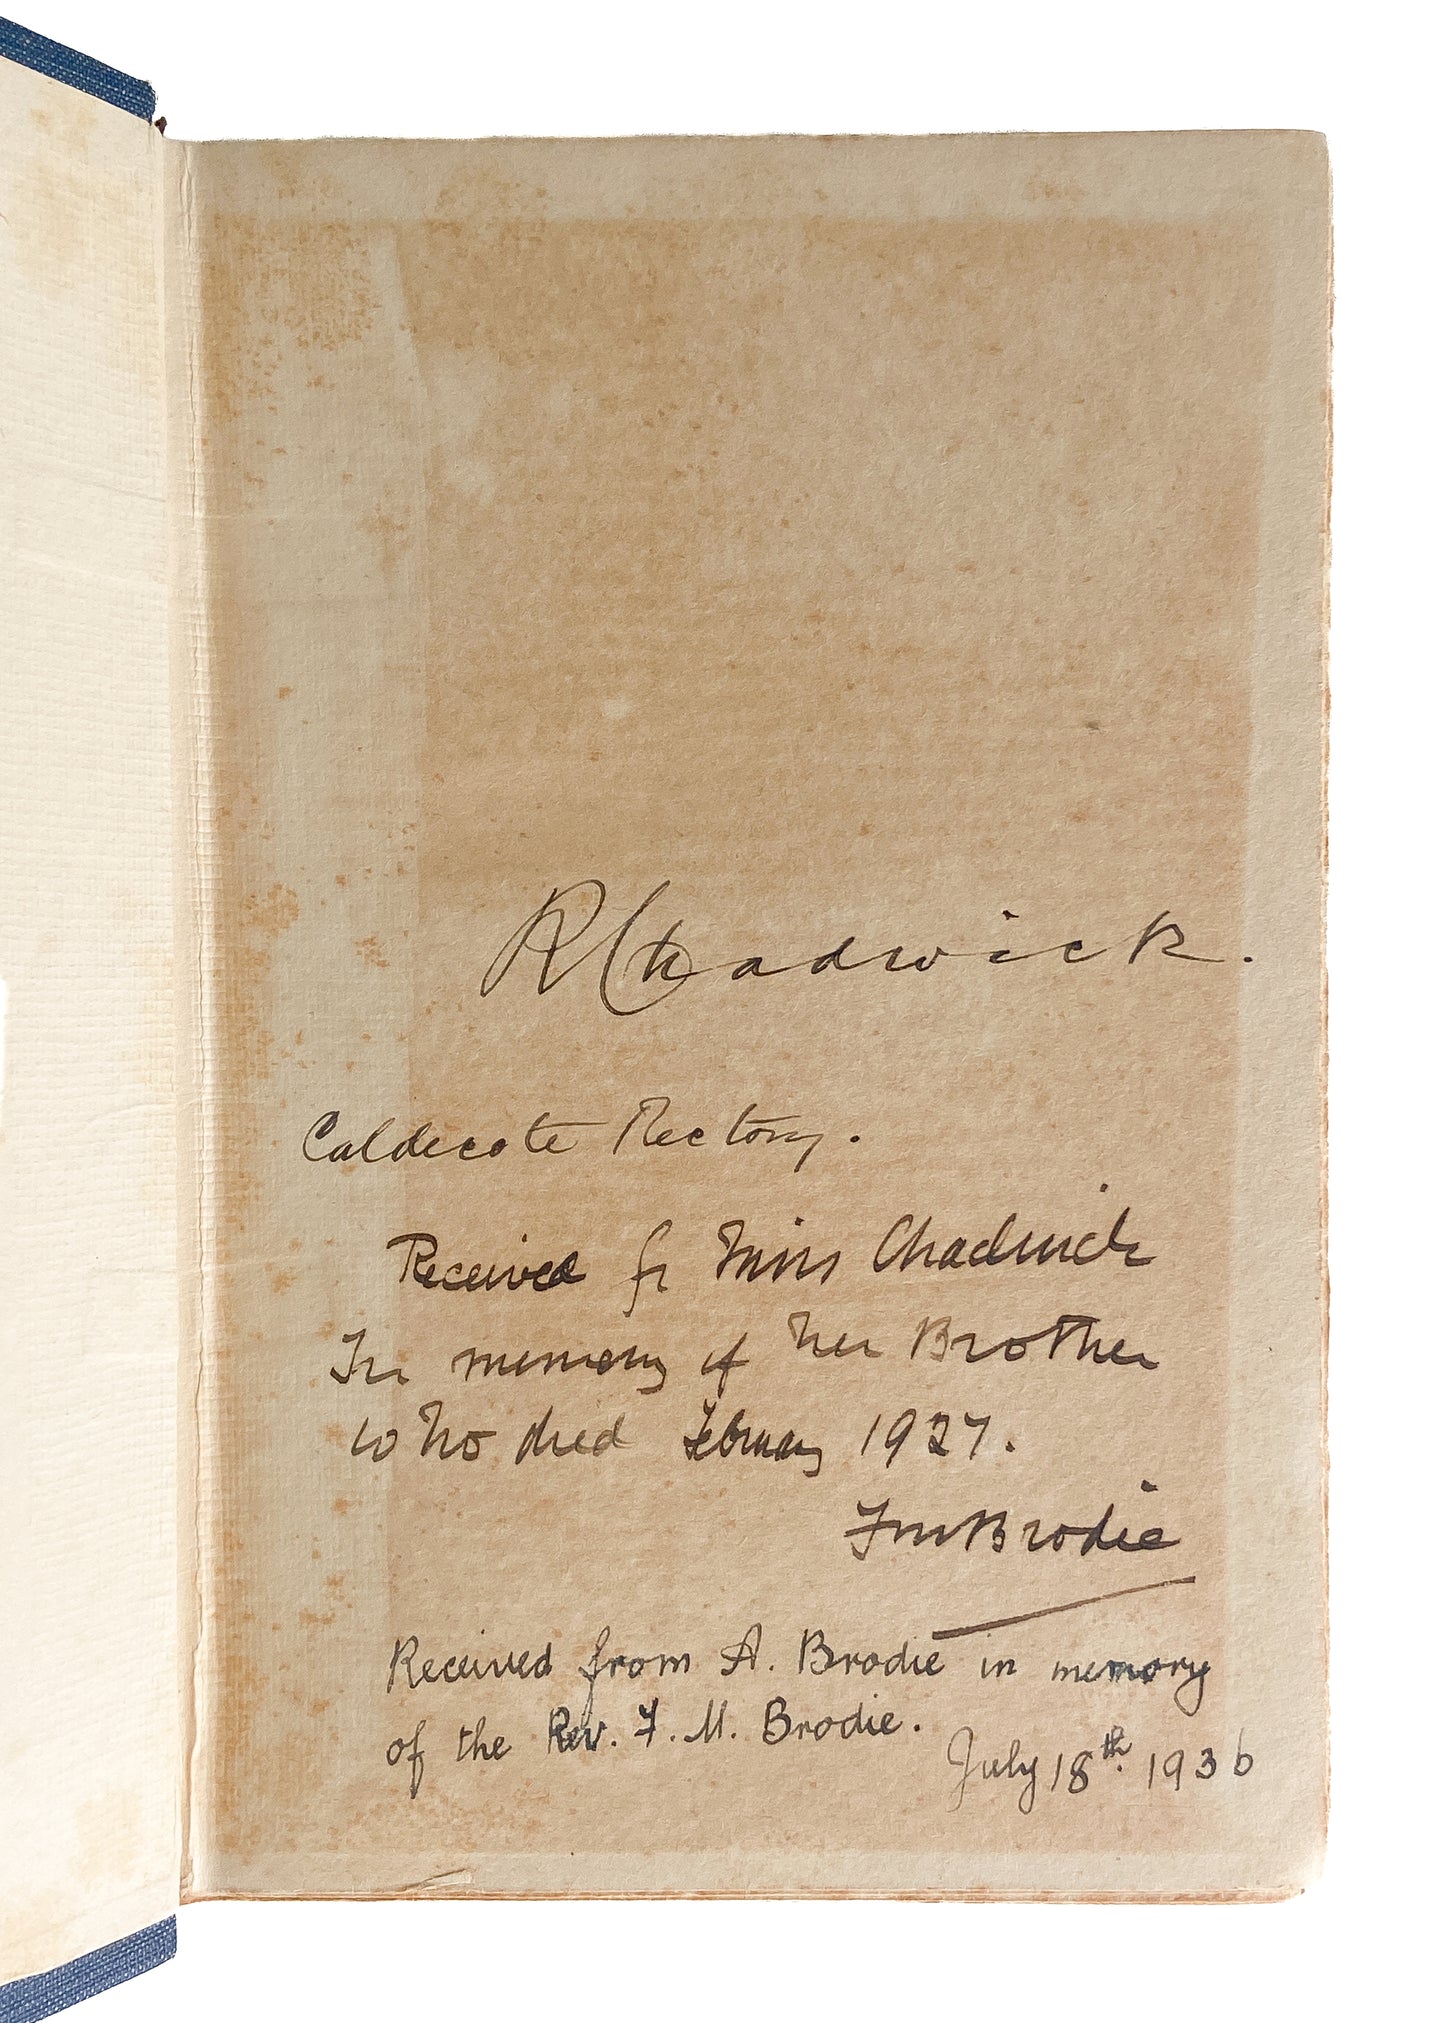 RChadwick.
Caldecote Rectory.
Received fr Miss Chadwick
In memory of her Brother
who died February 1927.
FMBrodie
Received from A. Brodie in memory
of the Rev. F. M. Brodie.
July 18th. 1936